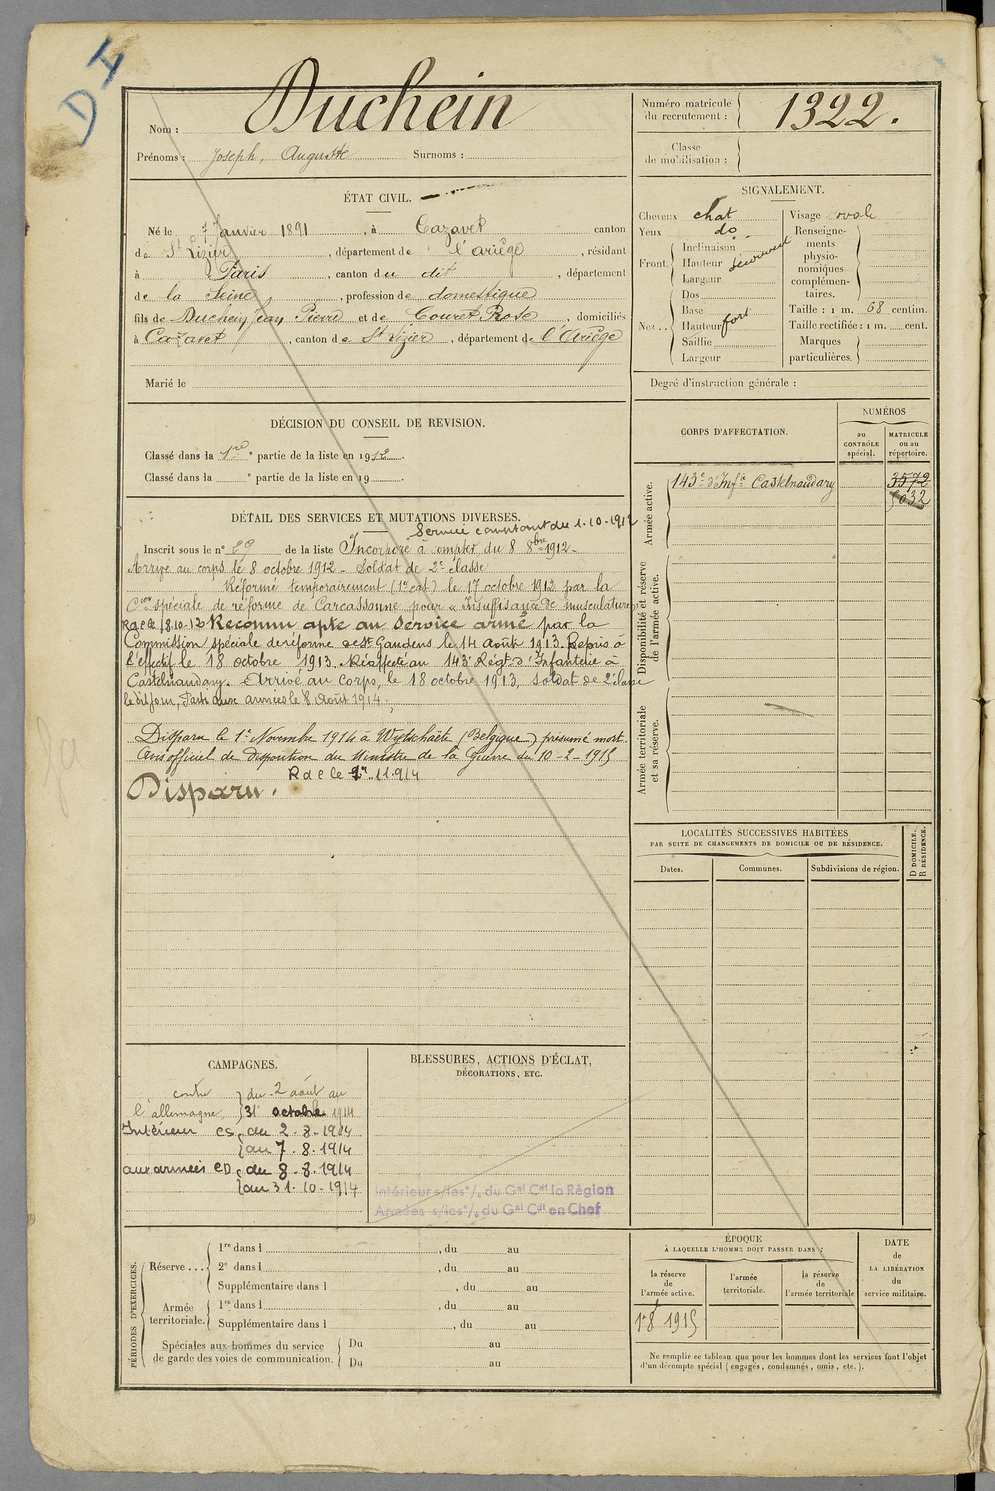 D I
Nom : Duchein
Prénoms : Joseph, Auguste Surnoms :
Numéro matricule du recrutement : 1322.
Classe de mobilisation :
ÉTAT CIVIL.
Né le 7 Janvier 1891, à Cazavet canton
de St Lizier, département de l'ariège, résidant
à Paris, canton du dit, département
de la Seine, profession de domestique
fils de Duchein Jean Pierre et de Couret Rose, domiciliés
à Cazavet, canton de St Lizier, département de l'Ariège
Marié le
SIGNALEMENT.
Cheveux chat
Yeux do
Front. Inclinaison
Hauteur découvert
Largeur
Nez. Dos
Base
Hauteur fort
Saillie
Largeur
Visage ovale
Renseignements physionomiques complémentaires.
Taille : 1 m. 68 centim.
Taille rectifiée : 1 m. cent.
Marques particulières.
Degré d'instruction générale :
DÉCISION DU CONSEIL DE REVISION.
Classé dans la 1re partie de la liste en 1912.
Classé dans la e partie de la liste en 19
CORPS D'AFFECTATION.
NUMÉROS
au CONTRÔLE spécial.
MATRICULE ou au répertoire.
Armée active.
143e d'Infie Castelnaudary 3572
5032
Disponibilité et réserve de l'armée active.
Armée territoriale et sa réserve.
DÉTAIL DES SERVICES ET MUTATIONS DIVERSES.
Service comptant du 1-10-1912
Inscrit sous le n° 29 de la liste Incorporé à compter du 8 8bre 1912.
Arrivé au corps le 8 octobre 1912 - Soldat de 2e classe
Réformé temporairement (1e cat) le 17 octobre 1912 par la
Con spéciale de réforme de Carcassonne pour « insuffisance de musculature
R d C le 18-10-12 Reconnu apte au Service armé par la
Commission spéciale de réforme de St Gaudens le 14 Août 1913. Repris à
l'effectif le 18 octobre 1913. Réaffecté au 143e Régt d'Infanterie à
Castelnaudary. Arrivé au Corps, le 18 octobre 1913, soldat de 2e classe
le dit jour, Parti aux armées le 8 Août 1914.
Disparu le 1er Novembre 1914 à Wytschaëte (Belgique) présumé mort.
Avis officiel de disparition du Ministre de la Guerre du 10-2-1915
R d C le 1er 11.914
Disparu.
LOCALITÉS SUCCESSIVES HABITÉES
PAR SUITE DE CHANGEMENTS DE DOMICILE OU DE RÉSIDENCE.
Dates.
Communes.
Subdivisions de région.
D DOMICILE.
R RÉSIDENCE.
CAMPAGNES.
contre l'allemagne du 2 août au
31 octobre 1914
Intérieur CS du 2-8-1914
au 7-8-1914
aux armées CD du 8-8-1914
au 31-10-1914
BLESSURES, ACTIONS D'ÉCLAT,
DÉCORATIONS, ETC.
Intérieur s/les o/s du Gal Cdt la Région
Armées s/les o/s du Gal Cdt en Chef
PÉRIODES D'EXERCICES.
Réserve ... 1re dans l , du au
2e dans l , du au
Supplémentaire dans l , du au
Armée territoriale. 1re dans l , du au
Supplémentaire dans l , du au
Spéciales aux hommes du service de garde des voies de communication. Du au
Du au
ÉPOQUE
À LAQUELLE L'HOMME DOIT PASSER DANS :
la réserve de l'armée active.
l'armée territoriale.
la réserve de l'armée territoriale
DATE de LA LIBÉRATION du service militaire.
1r 8 1915
Ne remplir ce tableau que pour les hommes dont les services font l'objet
d'un décompte spécial (engagés, condamnés, omis, etc.).